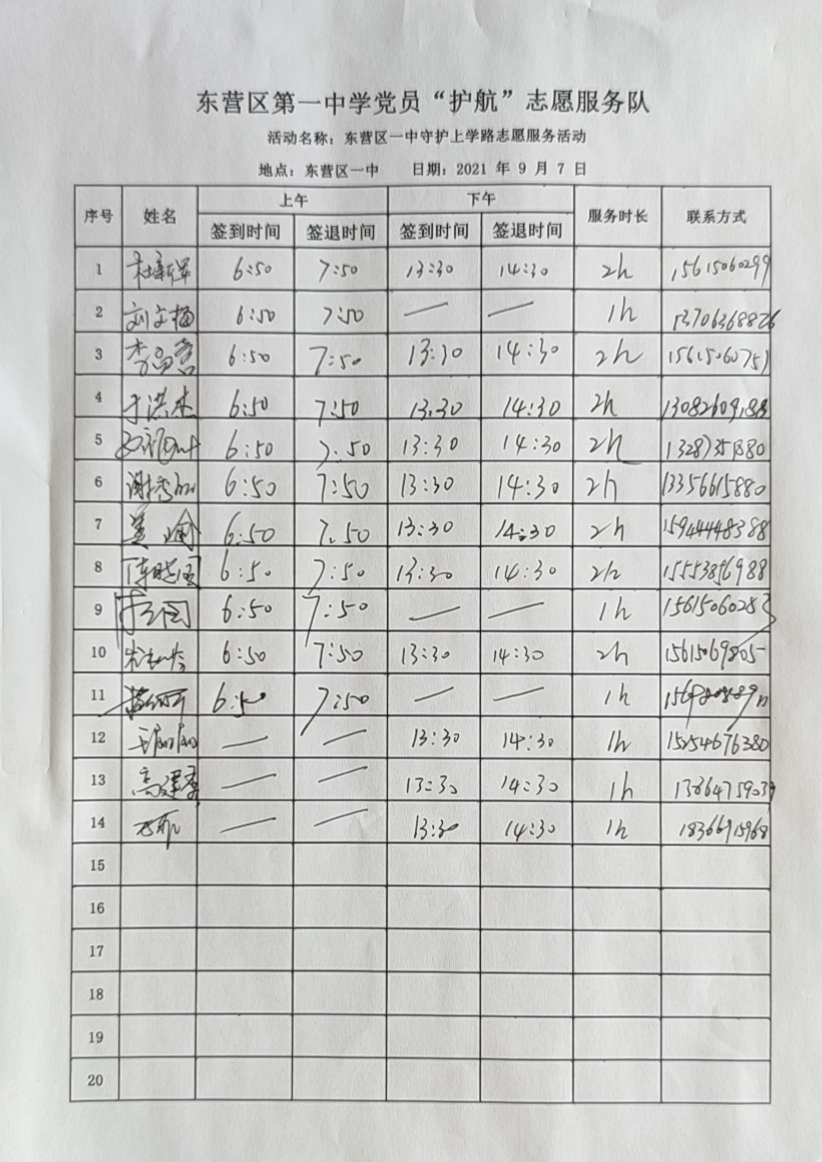 东营区第一中学党员“护航”志愿服务队
活动名称：东营区一中守护上学路志愿服务活动
地点：东营区一中 日期：2021 年 9 月 7 日
序号 姓名 上午 下午 服务时长 联系方式
签到时间 签退时间 签到时间 签退时间
1 6:50 7:50 13:30 14:30 2h 15615060299
2 刘文梅 6:50 7:50 — — 1h
3 6:50 7:50 13:30 14:30 2h 15615060751
4 于洪杰 6:50 7:50 13:30 14:30 2h
5 6:50 7:50 13:30 14:30 2h
6 6:50 7:50 13:30 14:30 2h 13356615880
7 6:50 7:50 13:30 14:30 2h 15944448388
8 6:50 7:50 13:30 14:30 2h 15553856988
9 6:50 7:50 — — 1h 15615060283
10 6:50 7:50 13:30 14:30 2h 15615069805
11 6:50 7:50 — — 1h
12 — — 13:30 14:30 1h 15254676380
13 高建秀 — — 13:30 14:30 1h 13864759039
14 — — 13:30 14:30 1h
15
16
17
18
19
20